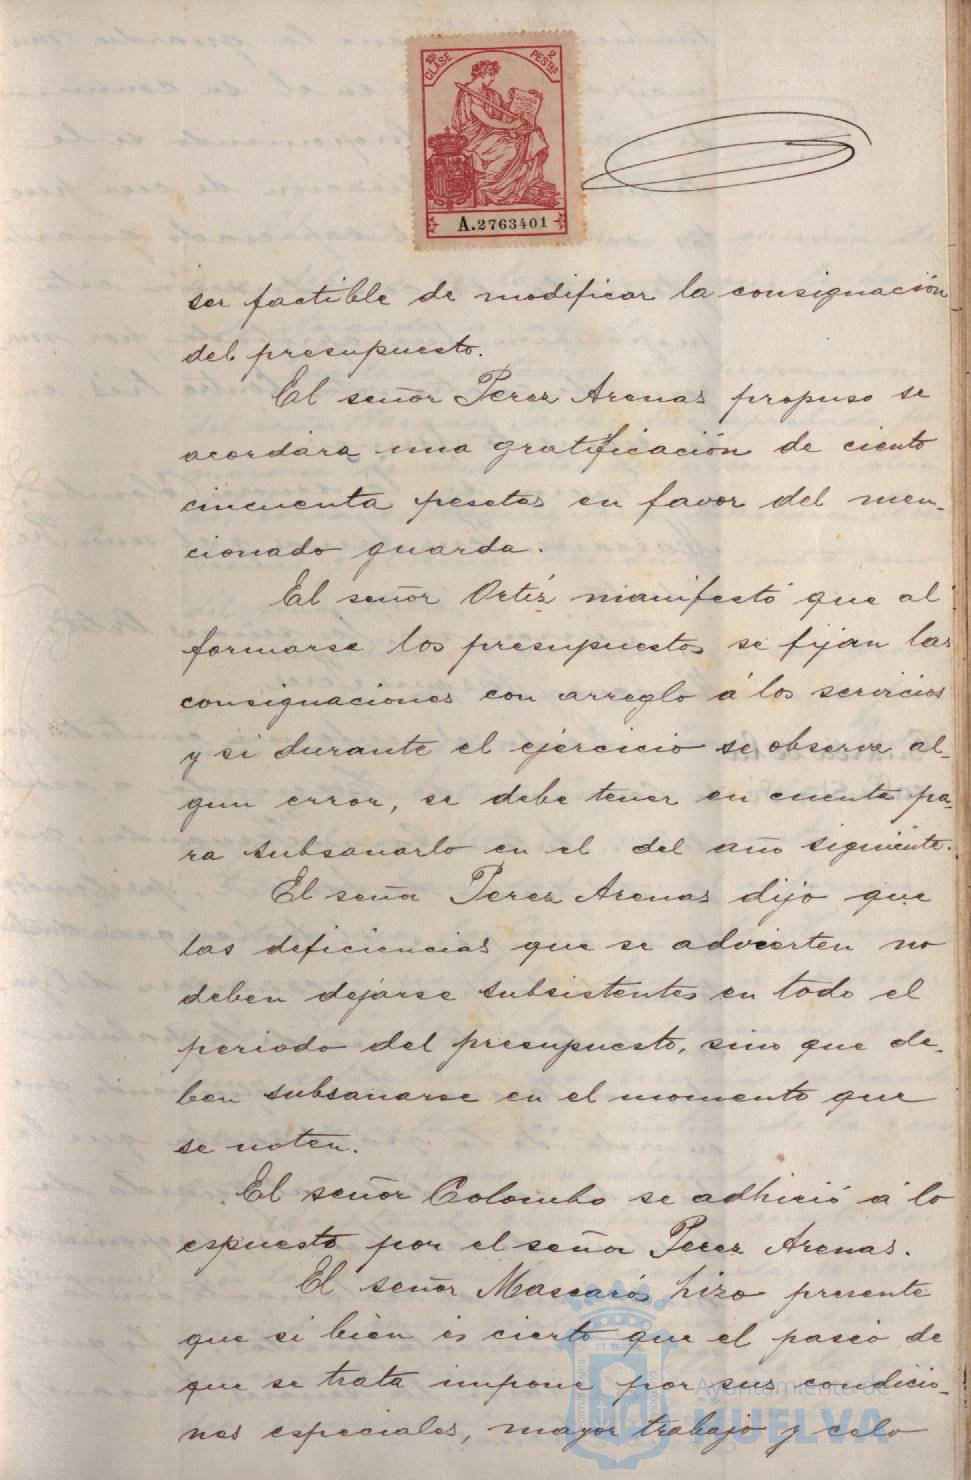 10ª CLASE 2 PESTAS
A.2763401
ser factible de modificar la consignación
del presupuesto.
El señor Perez Arenas propuso se
acordára una gratificación de ciento
cincuenta pesetas en favor del men-
cionado guarda.
El señor Ortíz manifestó que al
formarse los presupuestos se fijan las
consignaciones con arreglo á los servicios
y si durante el ejercicio se observa al-
gun error, se debe tener en cuenta pa-
ra subsanarlo en el del año siguiente.
El señor Perez Arenas dijo que
las deficiencias que se advierten no
deben dejarse subsistentes en todo el
periodo del presupuesto, sino que de-
ben subsanarse en el momento que
se noten.
El señor Colombo se adhirió á lo
espuesto por el señor Perez Arenas.
El señor Mascarós hizo presente
que si bien es cierto que el paseo de
que se trata impone por sus condicio-
nes especiales, mayor trabajo y celo
Ayuntamiento de
HUELVA